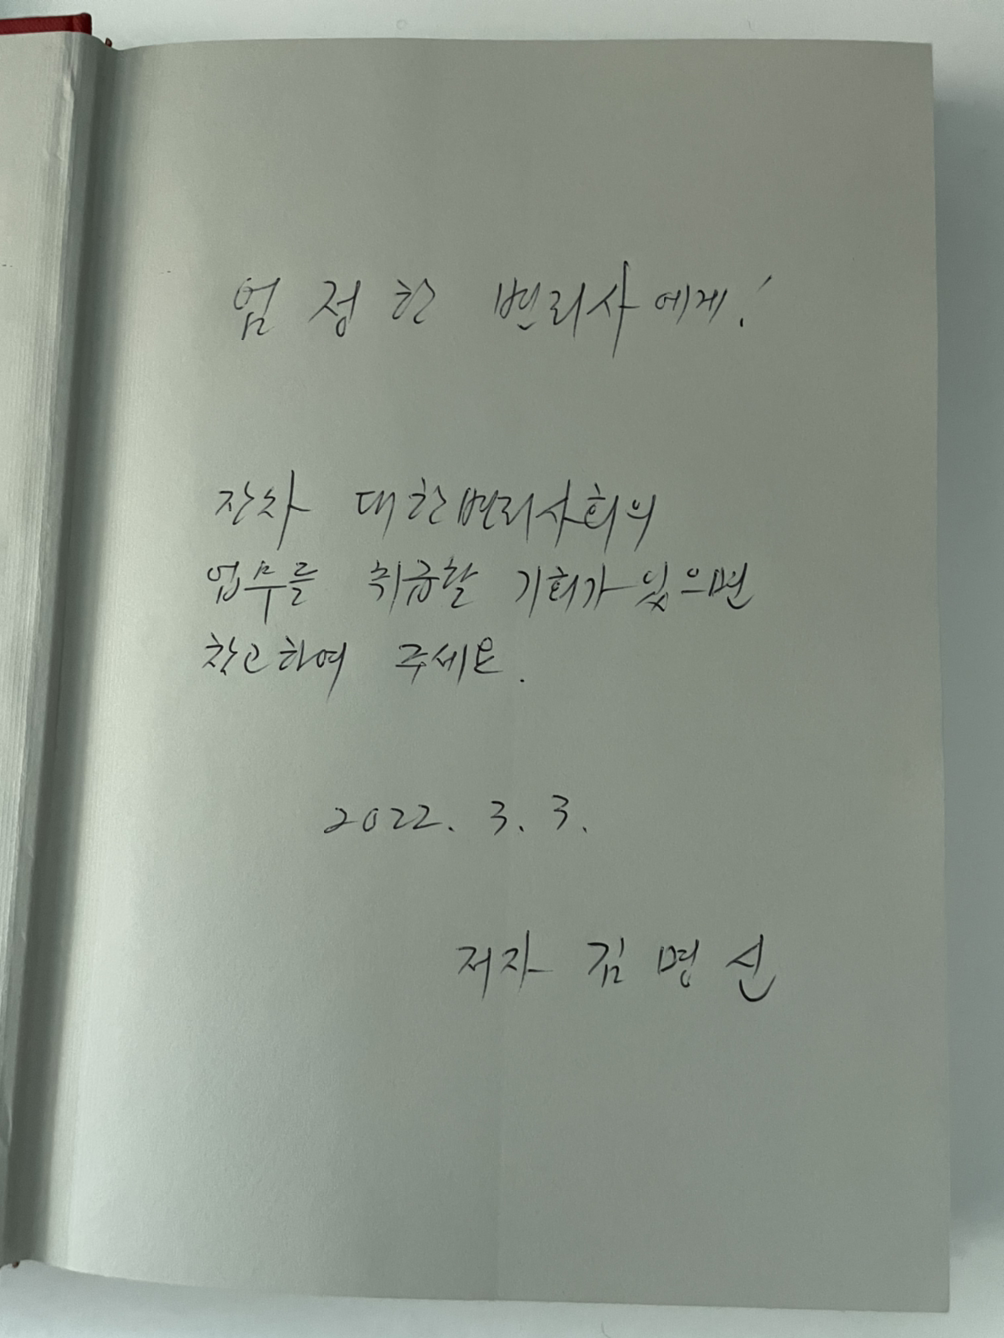 엄정한 변리사에게!
장차 대한변리사회의
업무를 취급할 기회가 있으면
참고하여 주세요.
2022. 3. 3.
저자 김명신